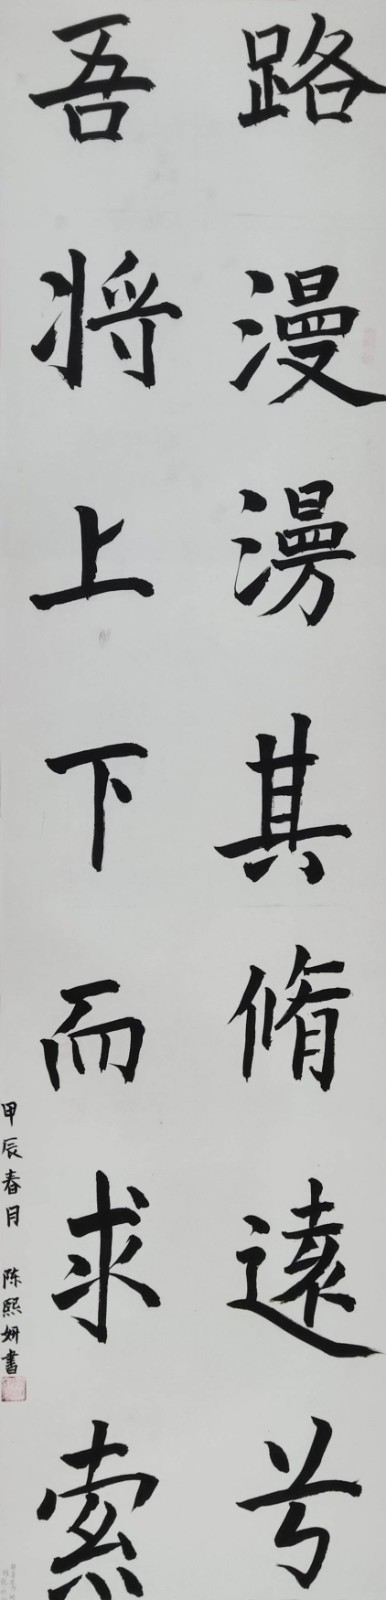 路漫漫其脩遠兮
吾将上下而求索
甲辰春月 陈熙妍書